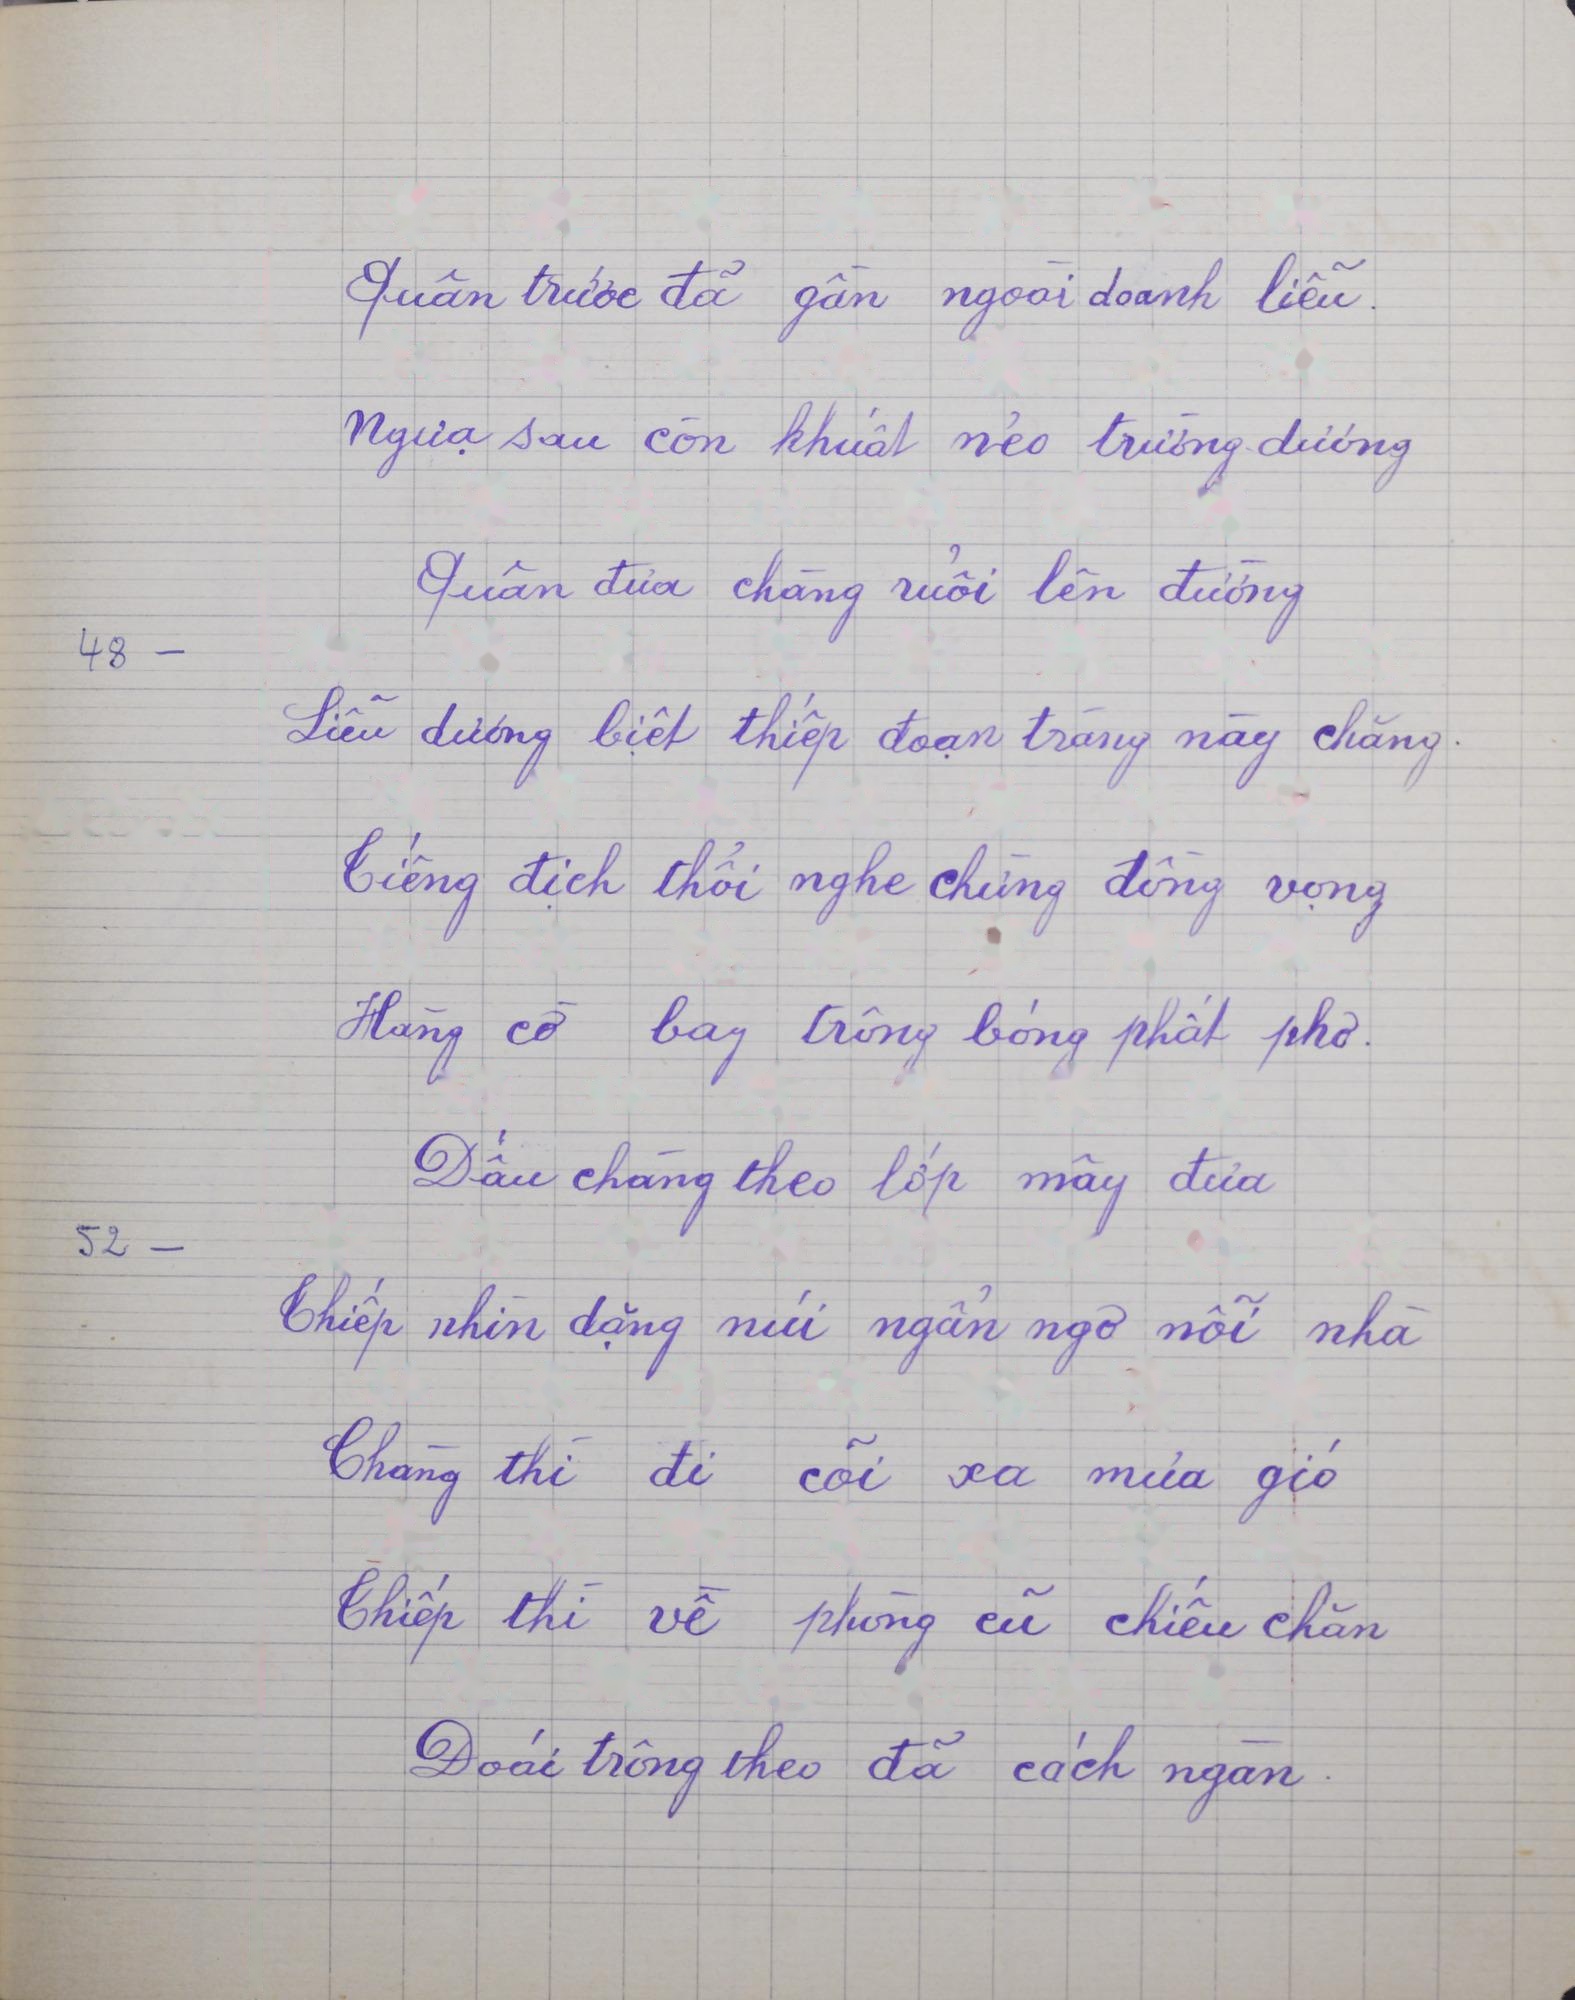 Quân trước đã gần ngoài doanh liễu.
Ngựa sau còn khuất nẻo trường-dương
Quân đưa chàng ruổi lên đường
48 –
Liễu dương biệt thiếp đoạn tràng này chăng.
Tiếng địch thổi nghe chừng đồng vọng
Hàng cờ bay trông bóng phất phơ.
Dấu chàng theo lớp mây đưa
52 –
Thiếp nhìn dặng núi ngẩn ngơ nỗi nhà
Chàng thì đi cõi xa mưa gió
Thiếp thì về phòng cũ chiếu chăn
Doái trông theo đã cách ngàn.